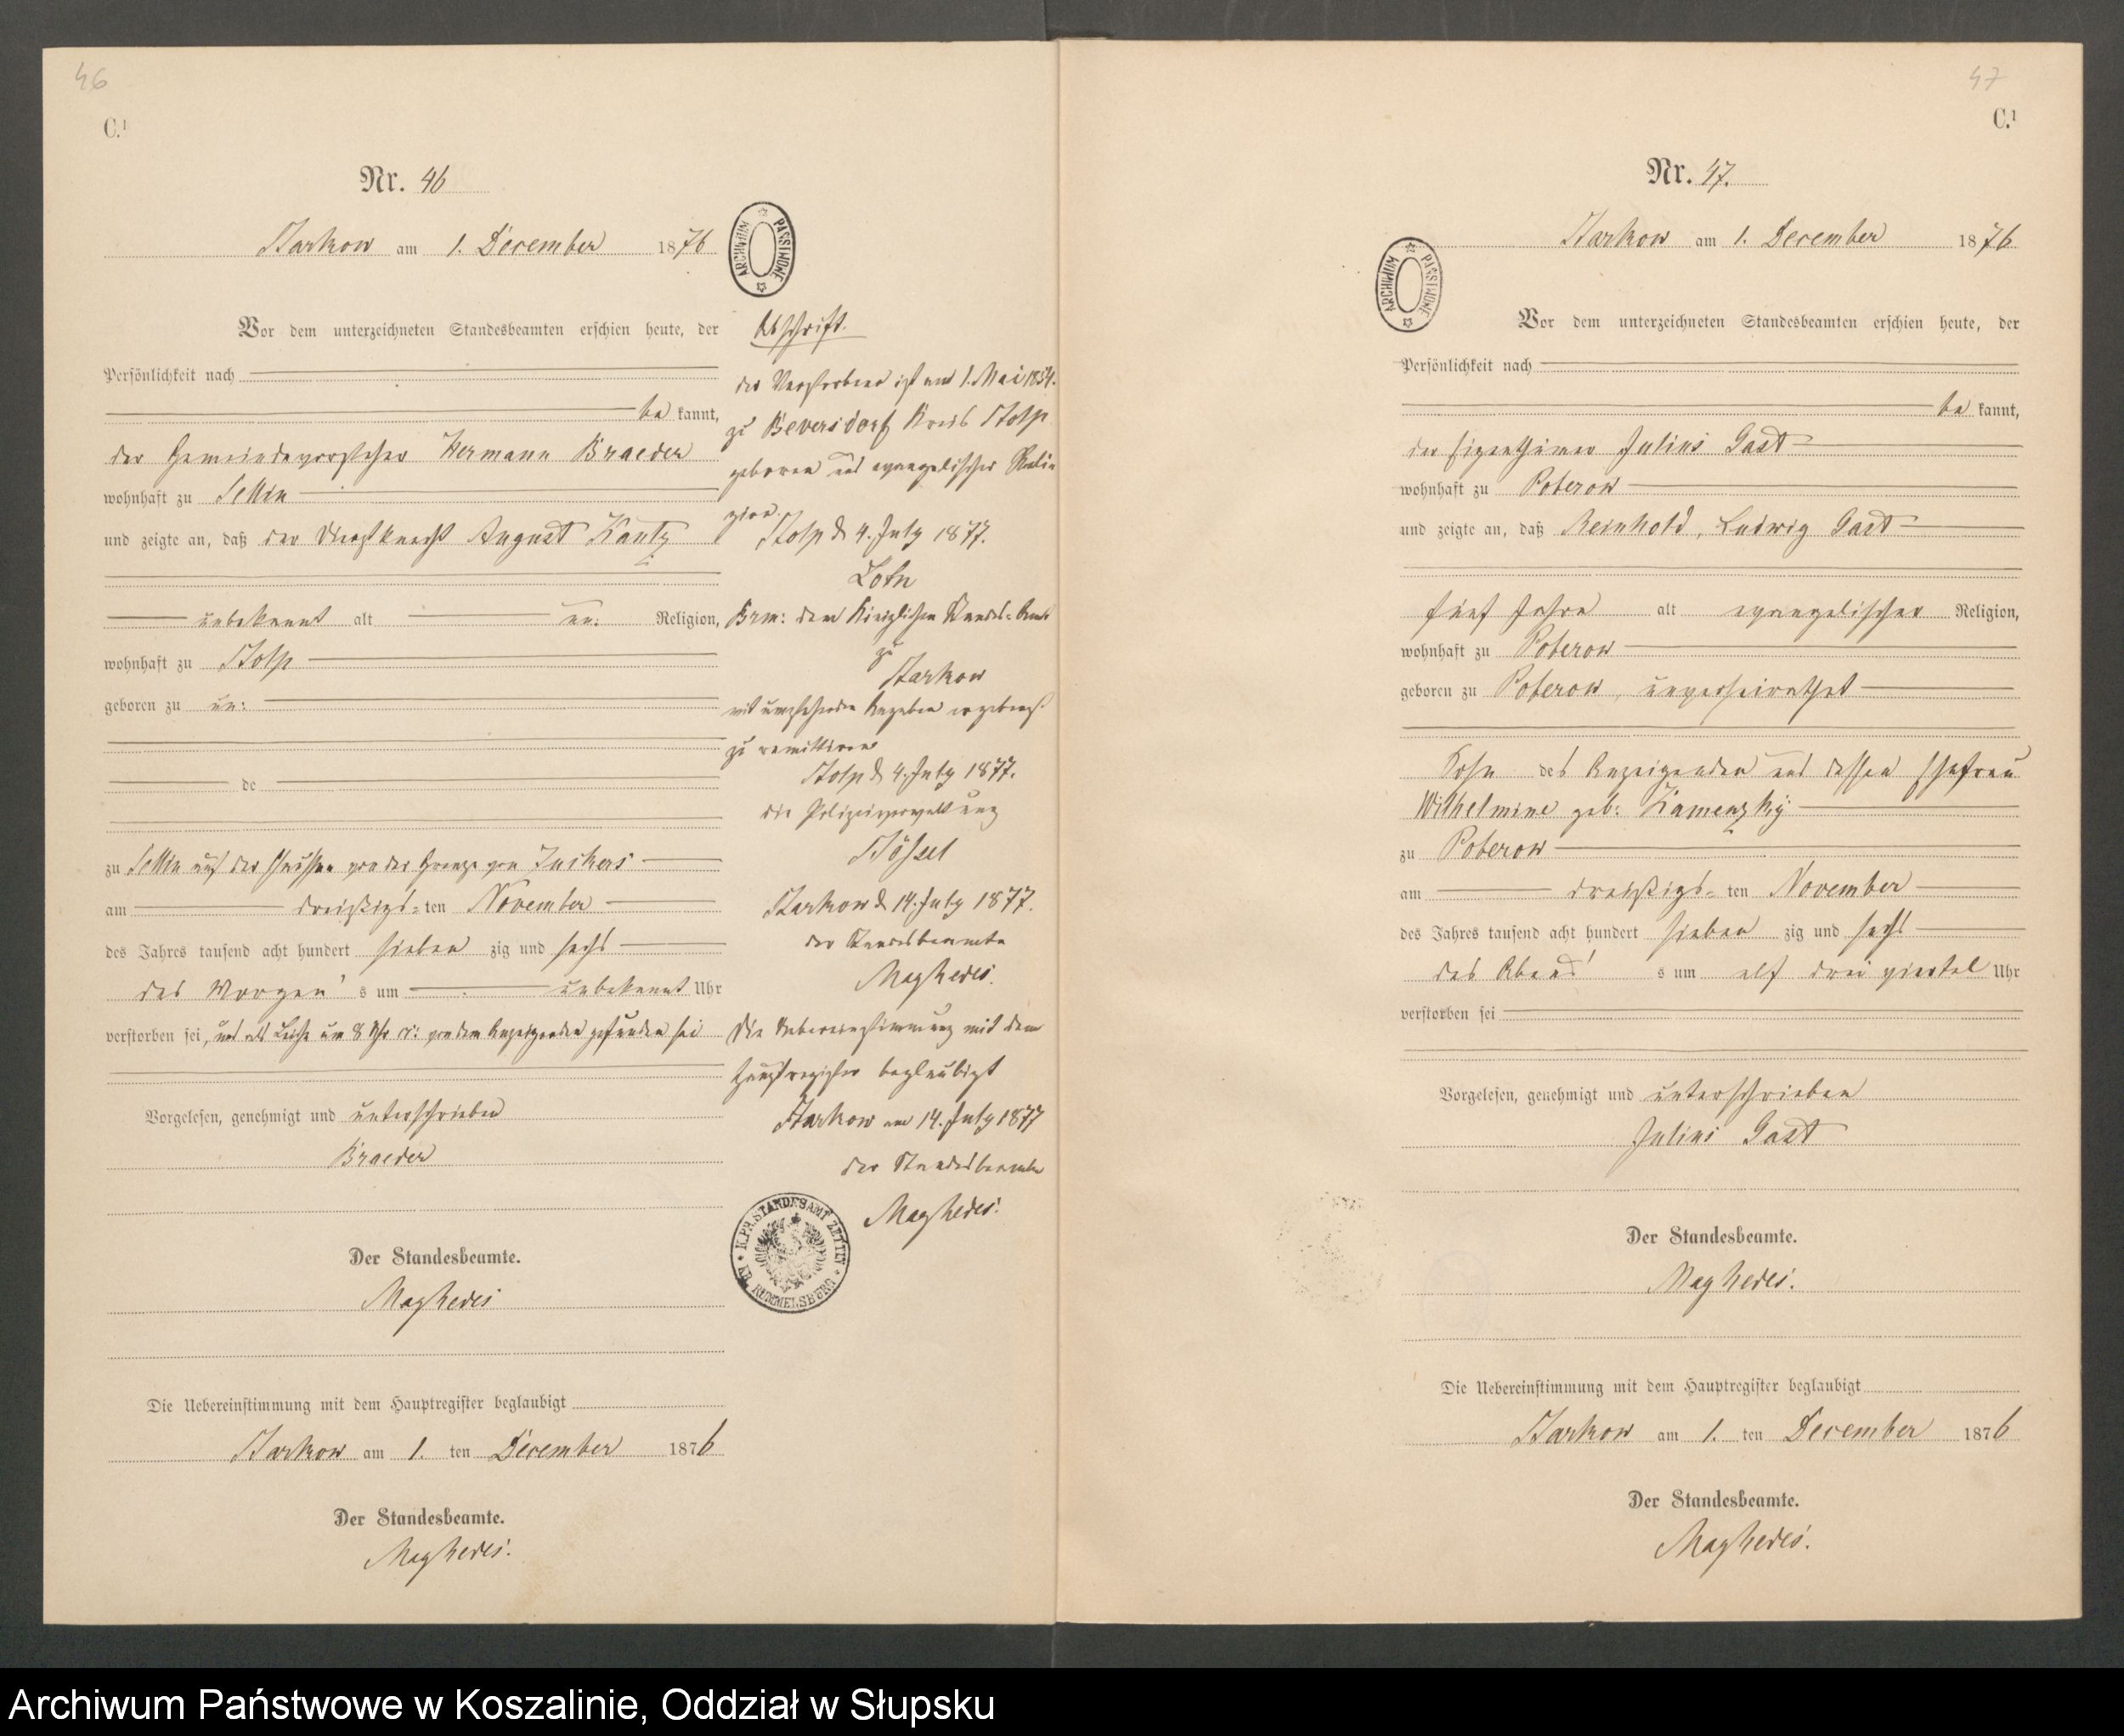 46
C.¹
Nr. 46
Starkow am 1. December 1876
Vor dem unterzeichneten Standesbeamten erschien heute, der
Persönlichkeit nach
be kannt,
der Gemeindevorsteher Hermann Braeder
wohnhaft zu Sellin
und zeigte an, daß der Dienstknecht August Kautz
unbekannt alt un: Religion,
wohnhaft zu Stolp
geboren zu un:
de
zu Sellin auf der Chaussee von der Grenze von Zuckers
am dreißigs-ten November
des Jahres tausend acht hundert sieben zig und sechs
des Morgen's um unbekannt Uhr
verstorben sei, und als Leiche um 8 Uhr von dem Anzeigenden gefunden sei
Vorgelesen, genehmigt und unterschrieben
Braeder
Der Standesbeamte.
Die Uebereinstimmung mit dem Hauptregister beglaubigt
Starkow am 1. ten December 1876
Der Standesbeamte.
ARCHIWUM PAŃSTWOWE
Abschrift.
der Verstorbene ist am 1. Mai 1854.
zu Beversdorf Kreis Stolp
geboren und evangelischer Reli
gion.
Stolp d 4. July 1877.
Brm: dem Königlichen Standes-Amt
zu
Starkow
mit umstehenden Angaben ergebenst
zu remittiren
Stolp d 4. July 1877.
die Polizeiverwaltung
Starkow d 14. July 1877.
der Standesbeamte
Die Uebereinstimmung mit dem
Hauptregister beglaubigt
Starkow am 14. July 1877
der Standesbeamte
K. PR. STANDESAMT ZETTIN * KR. RUMMELSBURG *
47
C.¹
Nr. 47.
Starkow am 1. December 1876
ARCHIWUM PAŃSTWOWE
Vor dem unterzeichneten Standesbeamten erschien heute, der
Persönlichkeit nach
be kannt,
der Eigenthümer Julius Gast
wohnhaft zu Poberow
und zeigte an, daß Reinhold, Ludwig Gast
fünf Jahre alt evangelischer Religion,
wohnhaft zu Poberow
geboren zu Poberow, unverheirathet
Sohn des Anzeigenden und dessen Ehefrau
Wilhelmine geb: Kamenzky
zu Poberow
am dreißigs-ten November
des Jahres tausend acht hundert sieben zig und sechs
des Abend's um elf drei viertel Uhr
verstorben sei
Vorgelesen, genehmigt und unterschrieben
Julius Gast
Der Standesbeamte.
Die Uebereinstimmung mit dem Hauptregister beglaubigt
Starkow am 1. ten December 1876
Der Standesbeamte.
Archiwum Państwowe w Koszalinie, Oddział w Słupsku